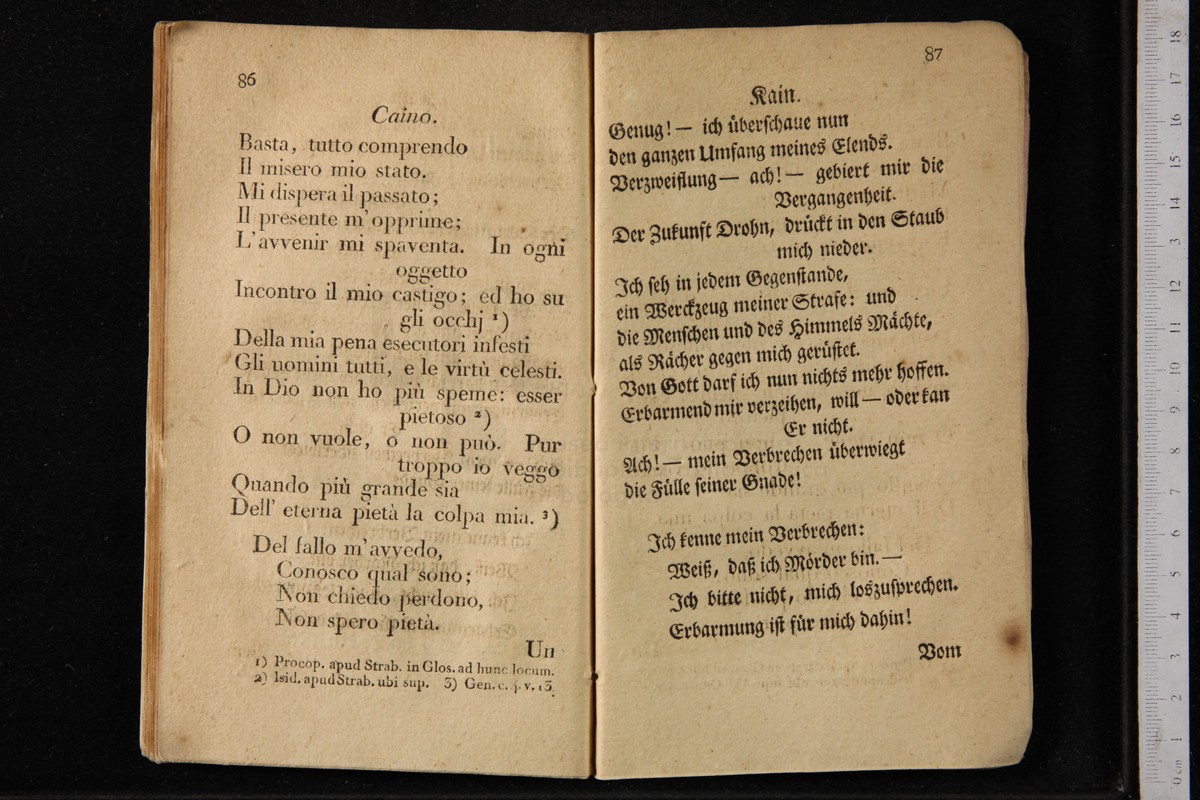 86
Caino.
Basta, tutto comprendo
Il misero mio stato.
Mi dispera il passato;
Il presente m'opprime;
L'avvenir mi spaventa. In ogni
oggetto
Incontro il mio castigo; ed ho su
gli occhj ¹)
Della mia pena esecutori infesti
Gli uomini tutti, e le virtù celesti.
In Dio non ho più speme: esser
pietoso ²)
O non vuole, o non può. Pur
troppo io veggo
Quando più grande sia
Dell' eterna pietà la colpa mia. ³)
Del fallo m'avvedo,
Conosco qual sono;
Non chiedo perdono,
Non spero pietà.
Un
1) Procop. apud Strab. in Glos. ad hunc locum.
2) Isid. apud Strab. ubi sup. 3) Gen. c. 4. v. 13.
87
Kain.
Genug! — ich überschaue nun
den ganzen Umfang meines Elends.
Verzweiflung — ach! — gebiert mir die
Vergangenheit.
Der Zukunft Drohn, drückt in den Staub
mich nieder.
Ich seh in jedem Gegenstande,
ein Werckzeug meiner Strafe: und
die Menschen und des Himmels Mächte,
als Rächer gegen mich gerüstet.
Von Gott darf ich nun nichts mehr hoffen.
Erbarmend mir verzeihen, will — oder kan
Er nicht.
Ach! — mein Verbrechen überwiegt
die Fülle seiner Gnade!
Ich kenne mein Verbrechen:
Weiß, daß ich Mörder bin. —
Ich bitte nicht, mich loszusprechen.
Erbarmung ist für mich dahin!
Vom
0 cm 1 2 3 4 5 6 7 8 9 10 11 12 3 14 15 16 17 18